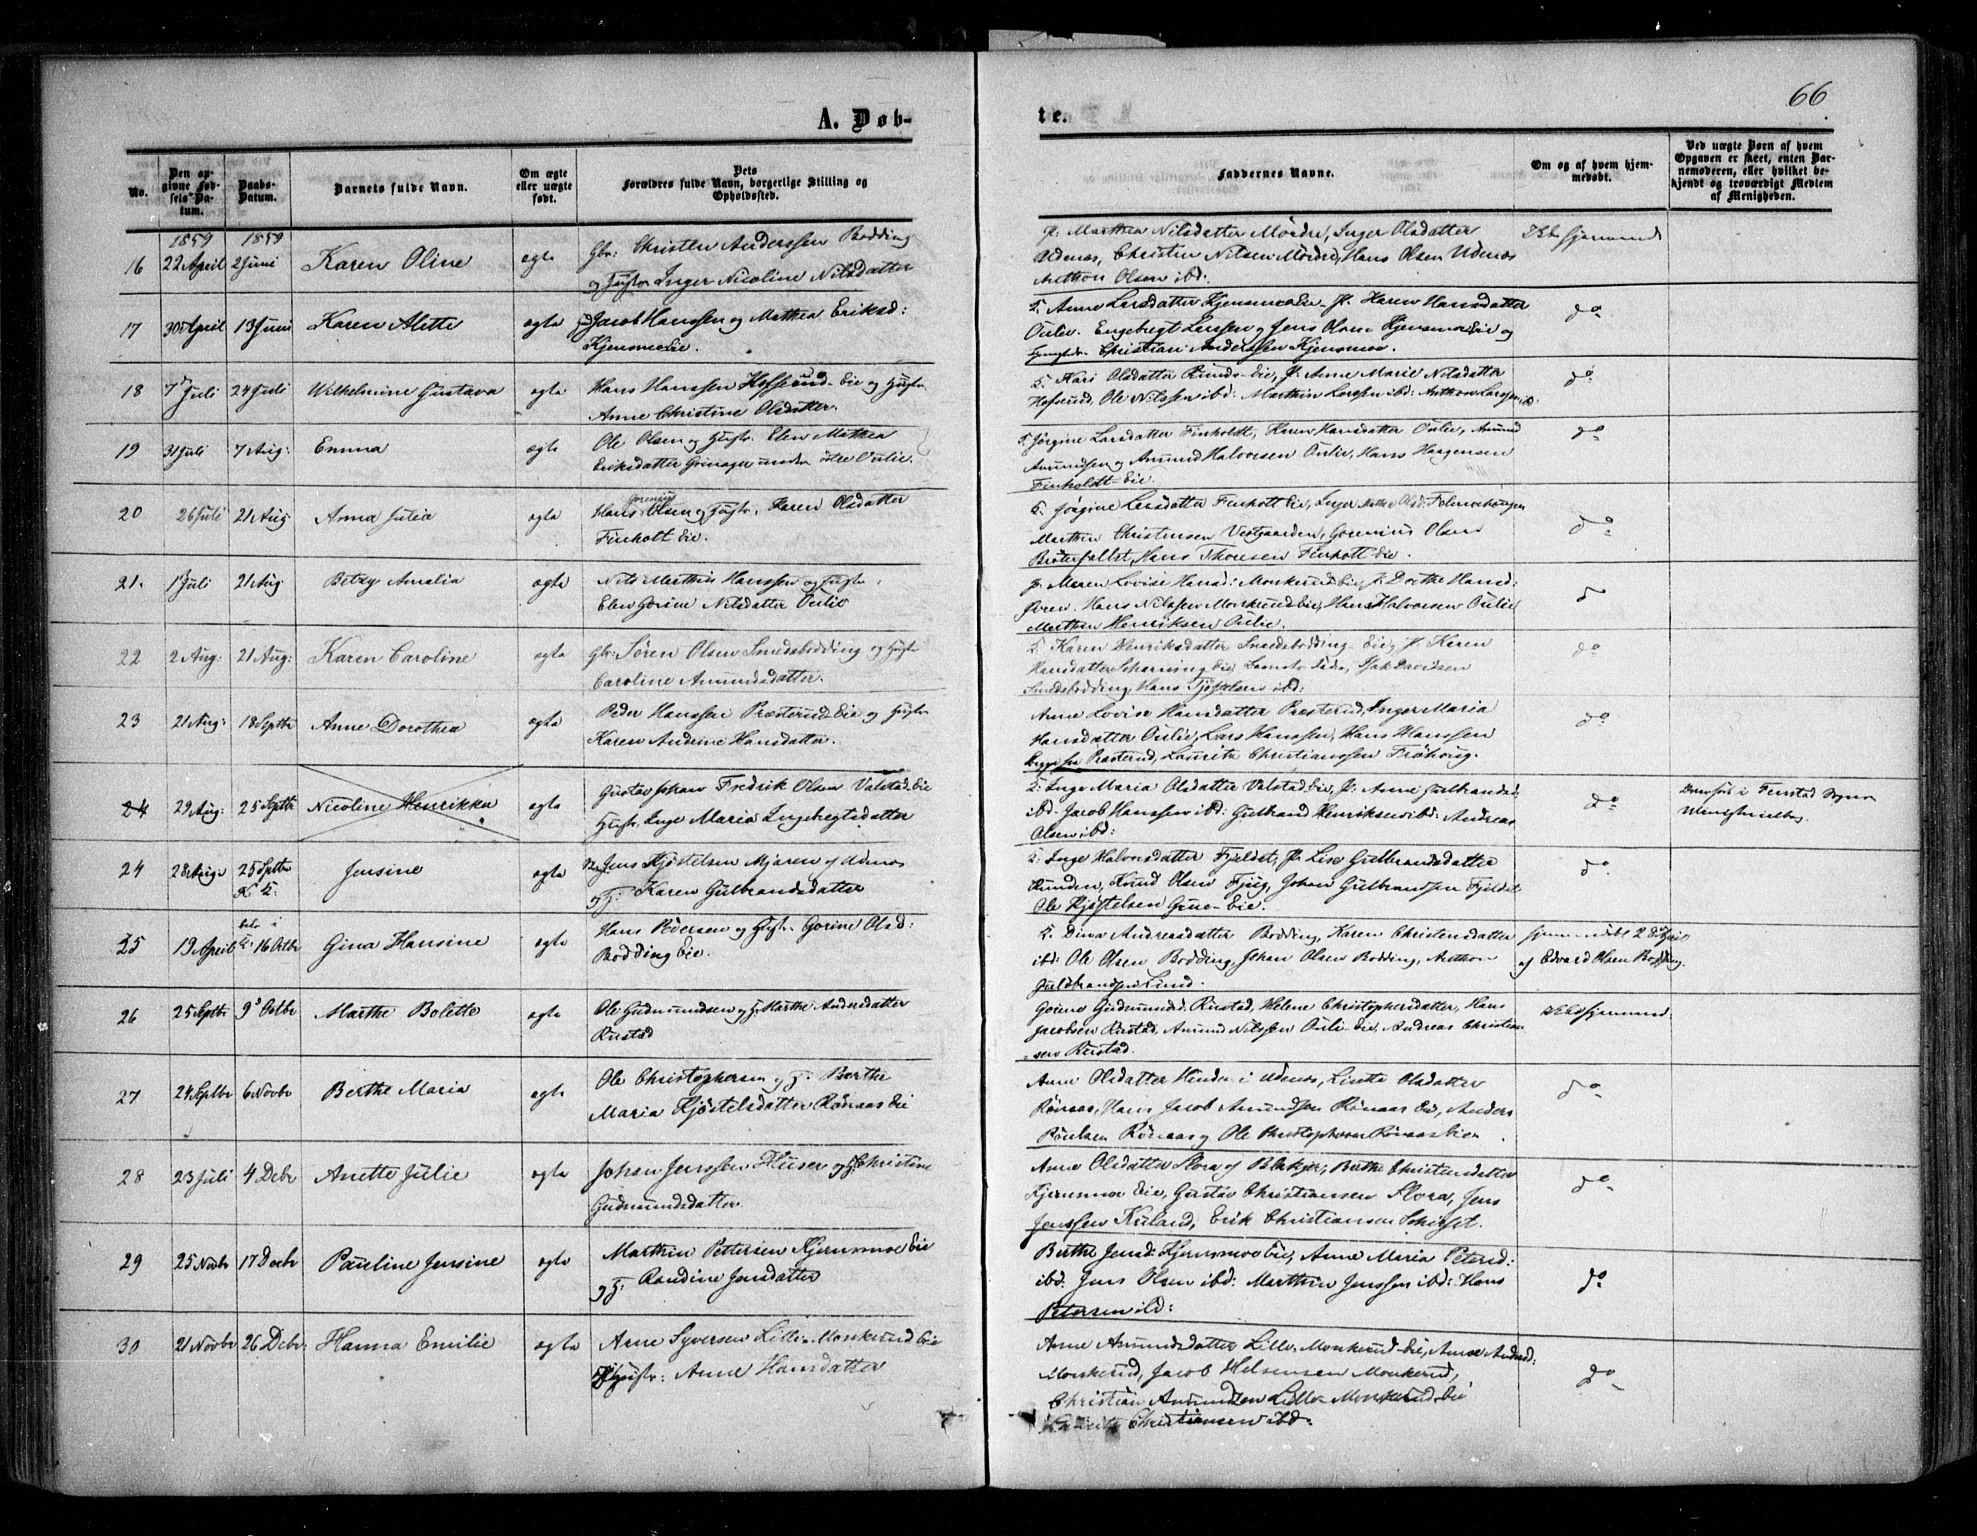 66
A. Døb-
te.
No.
Den op-
givne Fød-
sels-Da-
tum.
Daabs-
Datum.
Barnets fulde Navn.
Om ægte
eller uægte
født.
Dets
Forældres fulde Navn, borgerlige Stilling og
Opholdssted.
Faddernes Navne.
Om og af hvem hjem-
medøbt.
Ved uægte Børn af hvem
Opgaven er skeet, enten Bar-
nemoderen, eller hvilket be-
kjendt og troværdigt Medlem
af Menigheden.
1859 1859
16 22 April 2 Juni Karen Oline ægte Gbr: Christen Anderssen Bodding
og Hustr Inger Nicoline Nilsdatter
P. Marthea Nilsdatter Mørdre, Inger Olsdatter
Udenæs, Christen Nilsen Mørdre, Hans Olsen Udenæs
Anthon Olsen ibd:
17 30 April 13 Juni Karen Alette ægte Jacob Hanssen og Mathea Eriksd:
Kjensmoeie.
Anne Larsdatter Kjensmoeie P. Karen Hansdatter
Oulie. Engebregt Larssen og Jens Olsen Kjensmoeie og
Christian Anderssen Kjensmoe.
do
18 7 Juli 24 Juli Wilhelmine Gustava ægte Hans Hanssen Hofserud-Eie og Hustr
Anne Christine Olsdatter.
Kari Olsdatter Runds-Eie, P. Anne Marie Nilsdatter
Hofserud, Ole Nilssen ibd: Marthin Larssen ibd: Anthon Larssen
do
19 31 Juli 7 Aug: Emma ægte Ole Olsen og Hustr. Elen Mathea
Eriksdatter Grinager under østre Oulie.
Jørgine Larsdatter Finholdt, Karen Hansdatter Oulie, Amund
Amundsen og Amund Halvorsen Oulie, Hans Haagensen
Finholdt-Eie.
do
20 26 Juli 21 Aug: Anna Julia ægte Hans Gorenius Olsen og Hustr. Karen Olsdatter
Finholt Eie.
Jørgine Larsdatter Finholt Eie, Inger Mathea Olsd:
Marthin Christensen Vestgaarden, Gorenius Olsen
Hans Thoresen Finholt Eie.
do
21. 1 Juli 21 Aug Betzy Amalia ægte Nils Matthis Hanssen og Hustr.
Elen Gorine Nilsdatter Oulie
P. Maren Lovise Hansd: Monkerudeie, P. Dorthe Hansd:
Hans Nilssen Monkerudeie, Hans Halvorsen Oulie,
Marthin Henriksen Oulie.
22 2 Aug: 21 Aug: Karen Caroline ægte Gbr: Søren Olsen Smedsbodding og Hustr
Caroline Amundsdatter.
Karen Henriksdatter Smedsbodding Eie, P. Karen
Hansdatter Eie,
Smedsbodding, Hans ibd:
do
23 21 Aug: 18 Septbr Anne Dorothea ægte Peder Hanssen Præsterud-Eie og Hustr
Karen Andrine Hansdatter.
Anne Lovise Hansdatter Præsterud, Inger Maria
Hansdatter Oulie, Lars Hanssen, Hans Hanssen
Præsterud, Laurits Christianssen Frøhaug.
do
24 29 Aug: 25 Septbr Nicoline Henrikka ægte Gustav Johan Fredrik Olsen Valstad Eie
Hustr. Inge Maria Ingebregtsdatter
Inge Maria Olsdatter Valstad Eie, P. Anne Gulbrandsd:
ibd: Jacob Hanssen ibd: Gulbrand Henriksen ibd: Andreas
Olsen ibd:
do
24 28 Aug: 25 Septbr Jensine ægte Jens Kjøstelsen Mjaren af Udenæs
Karen Gulbrandsdatter
Inge Halvorsdatter Fjeldet, P. Lise Gulbrandsdatter
Runden, Knud Olsen Fjug, Johan Gulbrandsen Fjeldet
Ole Kjøstelsen Grue-Eie.
do
25 19 April 16 Octbr Gina Hansine ægte Hans Pedersen og Hustr. Gorine Olsd:
Bodding Eie.
Dina Andreasdatter Bodding, Karen Christensdatter
ibd: Ole Olsen Bodding, Johan Olsen Bodding, Anthon
Guldbrandsen Lund.
Hjemmedøbt 2 April
af Edvard Olsen Bodding.
26 25 Septbr 9 Octbr Marthe Bolette ægte Ole Gudmundsen og Marthe Andersdatter
Rustad
Gorine Gudmundsd. Rustad, Helene Christophersdatter, Hans
Jacobsen Rustad, Amund Nilssen Oulie-Eie, Andreas Christian
sen Rustad.
27 24 Septbr 6 Novbr Berthe Maria ægte Ole Christophersen og Berthe
Maria Kjøstelsdatter Rønaas Eie
Anne Olsdatter Hinden i Udenæs, Lisette Olsdatter
Rønaas, Hans Jacob Amundsen Rønaas Eie, Anders
Poulsen Rønaas og Ole Christophersen Rønaas Eie
do
28 23 Juli 4 Debr Anette Julie ægte Johan Jenssen Huser og Christine
Gudmundsdatter.
Anne Olsdatter Slora af Blakjer, Berthe Christensdatter
Kjernsmoe Eie, Gustav Christiansen Slora, Jens
Jenssen Kuland, Erik Christiansen
do
29 25 Novbr 17 Decbr Pauline Jensine ægte Marthin Pettersen Kjernsmoe Eie
Randine Jensdatter
Berthe Jensd: Kjernsmoe Eie, Anne Maria Petersd:
ibd. Jens Olsen ibd: Marthin Jenssen ibd: Hans
Petersen ibd:
do
30 21 Novbr 26 Debr: Hanna Emilie ægte Arne Syversen Lille-Monkerud Eie
Hustr: Anne Hansdatter
Anne Amundsdatter Lille-Monkerud-Eie, Anne Andersd:
Monkerud, Jacob Helsensen Monkerud,
Christian Amundsen Lille-Monkerud Eie
Christiansen ibd:
do